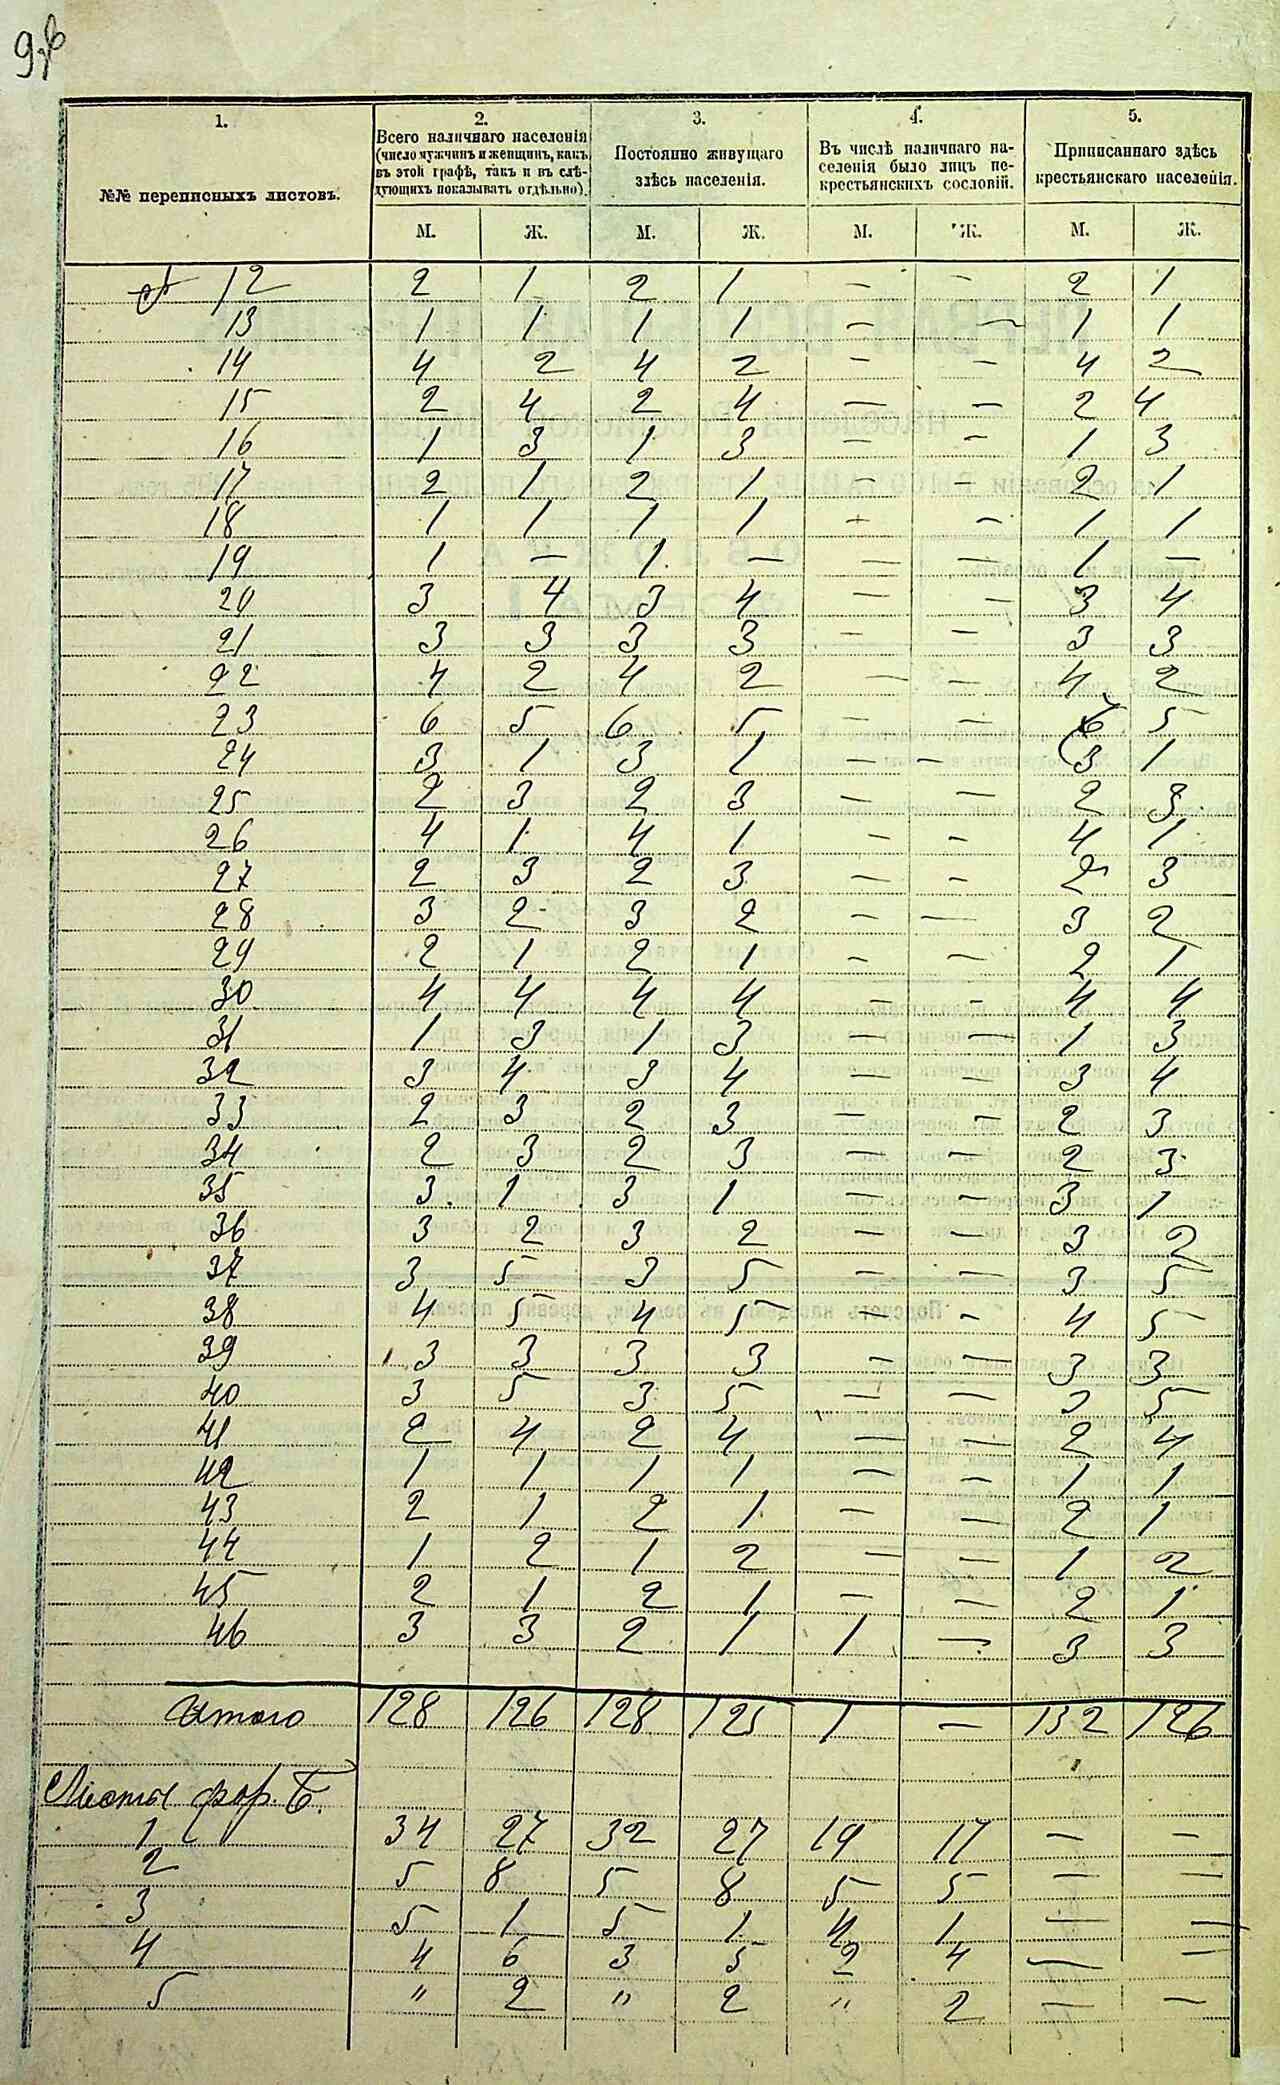 1. 2. 3. 4. 5.
№№ переписныхъ листовъ.
Всего наличнаго населенія (число мужчинъ и женщинъ, какъ въ этой графѣ, такъ и въ слѣдующихъ показывать отдѣльно).
Постоянно живущаго здѣсь населенія.
Въ числѣ наличнаго населенія было лицъ некрестьянскихъ сословій.
Приписаннаго здѣсь крестьянскаго населенія.
М. Ж. М. Ж. М. Ж. М. Ж.
12 2 1 2 1 — — 2 1
13 1 1 1 1 — — 1 1
14 4 2 4 2 — — 4 2
15 2 4 2 4 — — 2 4
16 1 3 1 3 — — 1 3
17 2 1 2 1 — — 2 1
18 1 1 1 1 — — 1 1
19 1 — 1 — — — 1 —
20 3 4 3 4 — — 3 4
21 3 3 3 3 — — 3 3
22 4 2 4 2 — — 4 2
23 6 5 6 5 — — 6 5
24 3 1 3 1 — — 3 1
25 2 3 2 3 — — 2 3
26 4 1 4 1 — — 4 1
27 2 3 2 3 — — 2 3
28 3 2 3 2 — — 3 2
29 2 1 2 1 — — 2 1
30 4 4 4 4 — — 4 4
31 1 3 1 3 — — 1 3
32 3 4 3 4 — — 3 4
33 2 3 2 3 — — 2 3
34 2 3 2 3 — — 2 3
35 3 1 3 1 — — 3 1
36 3 2 3 2 — — 3 2
37 3 5 3 5 — — 3 5
38 4 5 4 5 — — 4 5
39 3 3 3 3 — — 3 3
40 3 5 3 5 — — 3 5
41 2 4 2 4 — — 2 4
42 1 1 1 1 — — 1 1
43 2 1 2 1 — — 2 1
44 1 2 1 2 — — 1 2
45 2 1 2 1 — — 2 1
46 3 3 2 1 1 — 3 3
Итого 128 126 128 125 1 — 132 126
Листы фор. Б.
1 34 27 32 27 19 17 — —
2 5 8 5 8 5 5 — —
3 5 1 5 1 4 1 — —
4 4 6 3 5 2 4 — —
5 " 2 " 2 " 2 — —